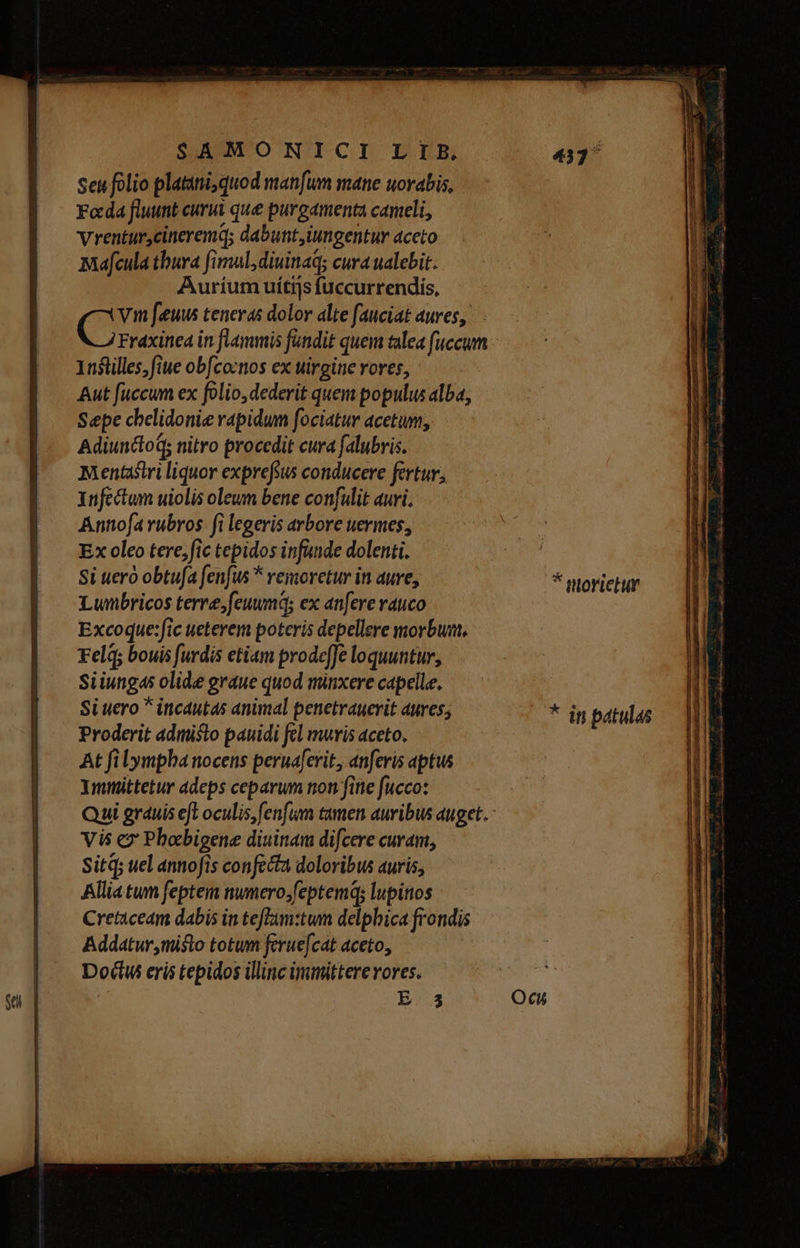 SAMONICI LIB. 437
Seu folio platani,quod manſum mane uorabis,
Fœda fluunt curui quæ purgamenta cameli,
Vrentur,cineremq́; dabunt,iungentur aceto
Maſcula thura ſimul,diuinaq́; cura ualebit.
Aurium uitijs ſuccurrendis,
CVm ſæuus teneras dolor alte ſauciat aures,
Fraxinea in flammis fundit quem talea ſuccum
Inſtilles,ſiue obſcœnos ex uirgine rores,
Aut ſuccum ex folio,dederit quem populus alba,
Sæpe chelidoniæ rapidum ſociatur acetum,
Adiunctoq́; nitro procedit cura ſalubris.
Mentaſtri liquor expreſſus conducere fertur,
Infectum uiolis oleum bene conſulit auri.
Annoſa rubros ſi legeris arbore uermes,
Ex oleo tere,ſic tepidos infunde dolenti.
Si uerò obtuſa ſenſus * remoretur in aure, * morietur
Lumbricos terræ,ſeuumq́; ex anſere rauco
Excoque:ſic ueterem poteris depellere morbum.
Felq́; bouis ſurdis etiam prodeſſe loquuntur,
Si iungas olidæ graue quod minxere capellæ.
Si uero * incautas animal penetrauerit aures, * in patulas
Proderit admiſto pauidi fel muris aceto.
At ſi lympha nocens peruaſerit, anſeris aptus
Immittetur adeps ceparum non ſine ſucco:
Qui grauis eſt oculis,ſenſum tamen auribus auget.
Vis & Phœbigenæ diuinam diſcere curam,
Sitq́; uel annoſis confecta doloribus auris,
Allia tum ſeptem numero,ſeptemq́; lupinos
Cretaceam dabis in teſtam:tum delphica frondis
Addatur,miſto totum ferueſcat aceto,
Doctus eris tepidos illinc immittere rores.
E 3 Ocu
Seu